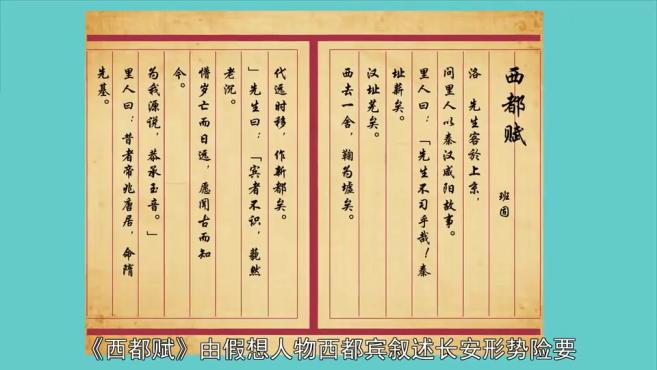 西都赋
班固
洛 先生客於上京，
问里人以秦汉咸阳故事。
里人曰：「先生不习乎哉！秦
址薪矣。
汉址芜矣。
西去一舍，鞠为墟矣。
代远时移，作新都矣。
」先生曰：「宾者不识，藐然
老沉。
惜岁亡而日远，愿闻古而知
今。
为我源说，恭承玉音。」
里人曰：昔者帝兆唐居，命隋
先基。
《西都赋》由假想人物西都宾叙述长安形势险要